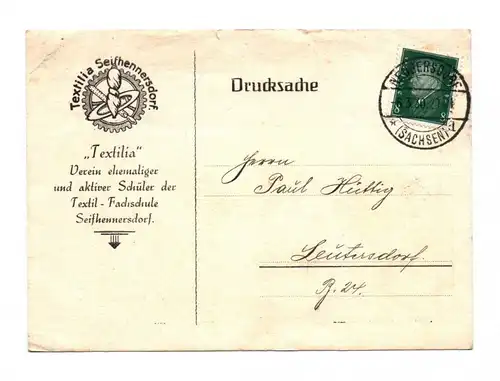 Textilia Seifhennersdorf.
„Textilia"
Verein ehemaliger
und aktiver Schüler der
Textil-Fachschule
Seifhennersdorf.
Drucksache
(SACHSEN)
8
Herrn
Paul Hüttig
Leutersdorf.
B. 24.